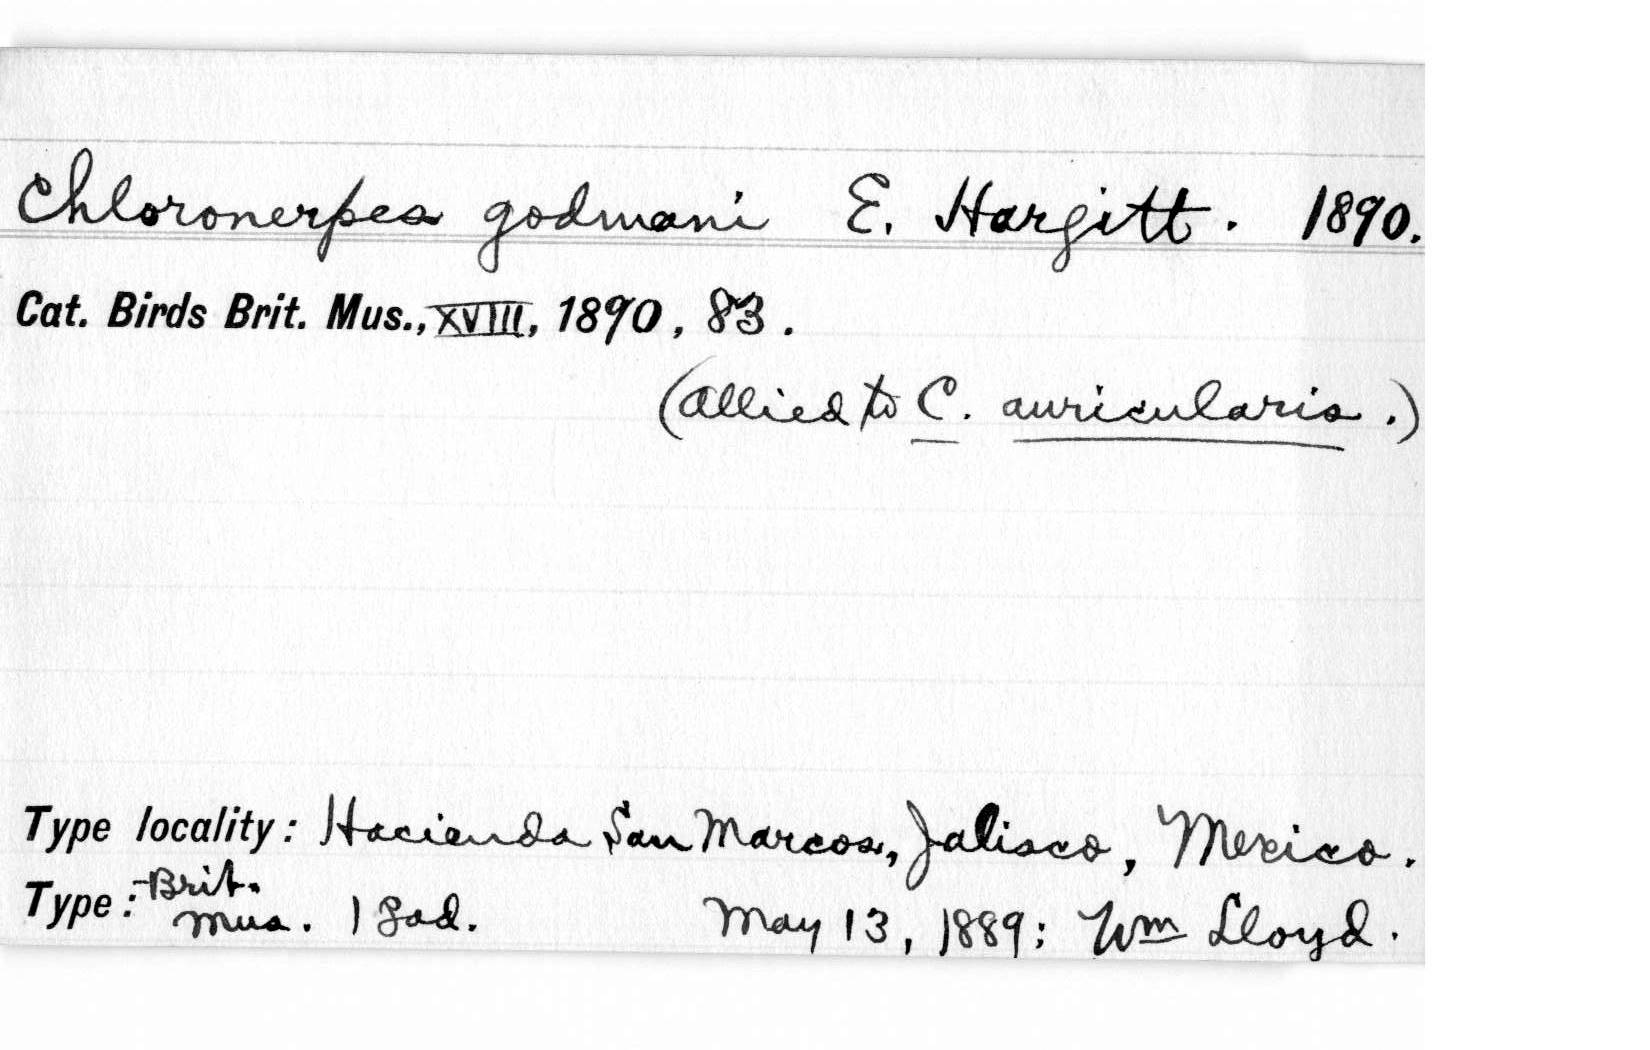 Chloronerpes godmani E. Hargitt. 1890.
Cat. Birds Brit. Mus., XVIII, 1890, 83.
(Allied to C. auricularis.)
Type locality: Hacienda San Marcos, Jalisco, Mexico.
Type: Brit. Mus. 1 ad. May 13, 1889; Wm Lloyd.